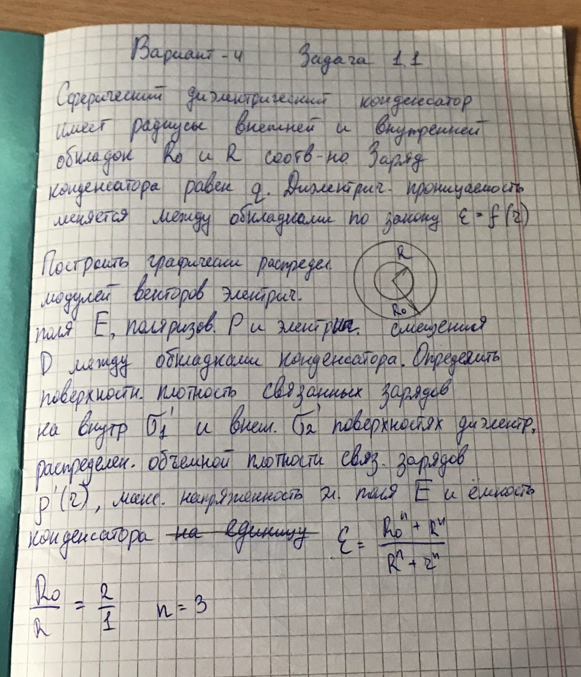 Вариант-4 Задача 1.1
Сферический диэлектрический конденсатор
имеет радиусы внешней и внутренней
обкладок R₀ и R соотв-но Заряд
конденсатора равен q. Диэлектрич. проницаемость
меняется между обкладками по закону ε = f(r)
Построить графически распредел.
модулей векторов электрич.
R
R₀
поля E, поляризов. P и электрич. смещения
D между обкладками конденсатора. Определить
поверхностн. плотность связанных зарядов
на внутр σ₁' и внеш. σ₂' поверхностях диэлектр,
распределен. объемной плотности связ. зарядов
ρ'(r), макс. напряженность эл. поля E и ёмкость
конденсатора на единицу ε = (R₀ⁿ + Rⁿ)/(Rⁿ + rⁿ)
R₀/R = 2/1 n = 3